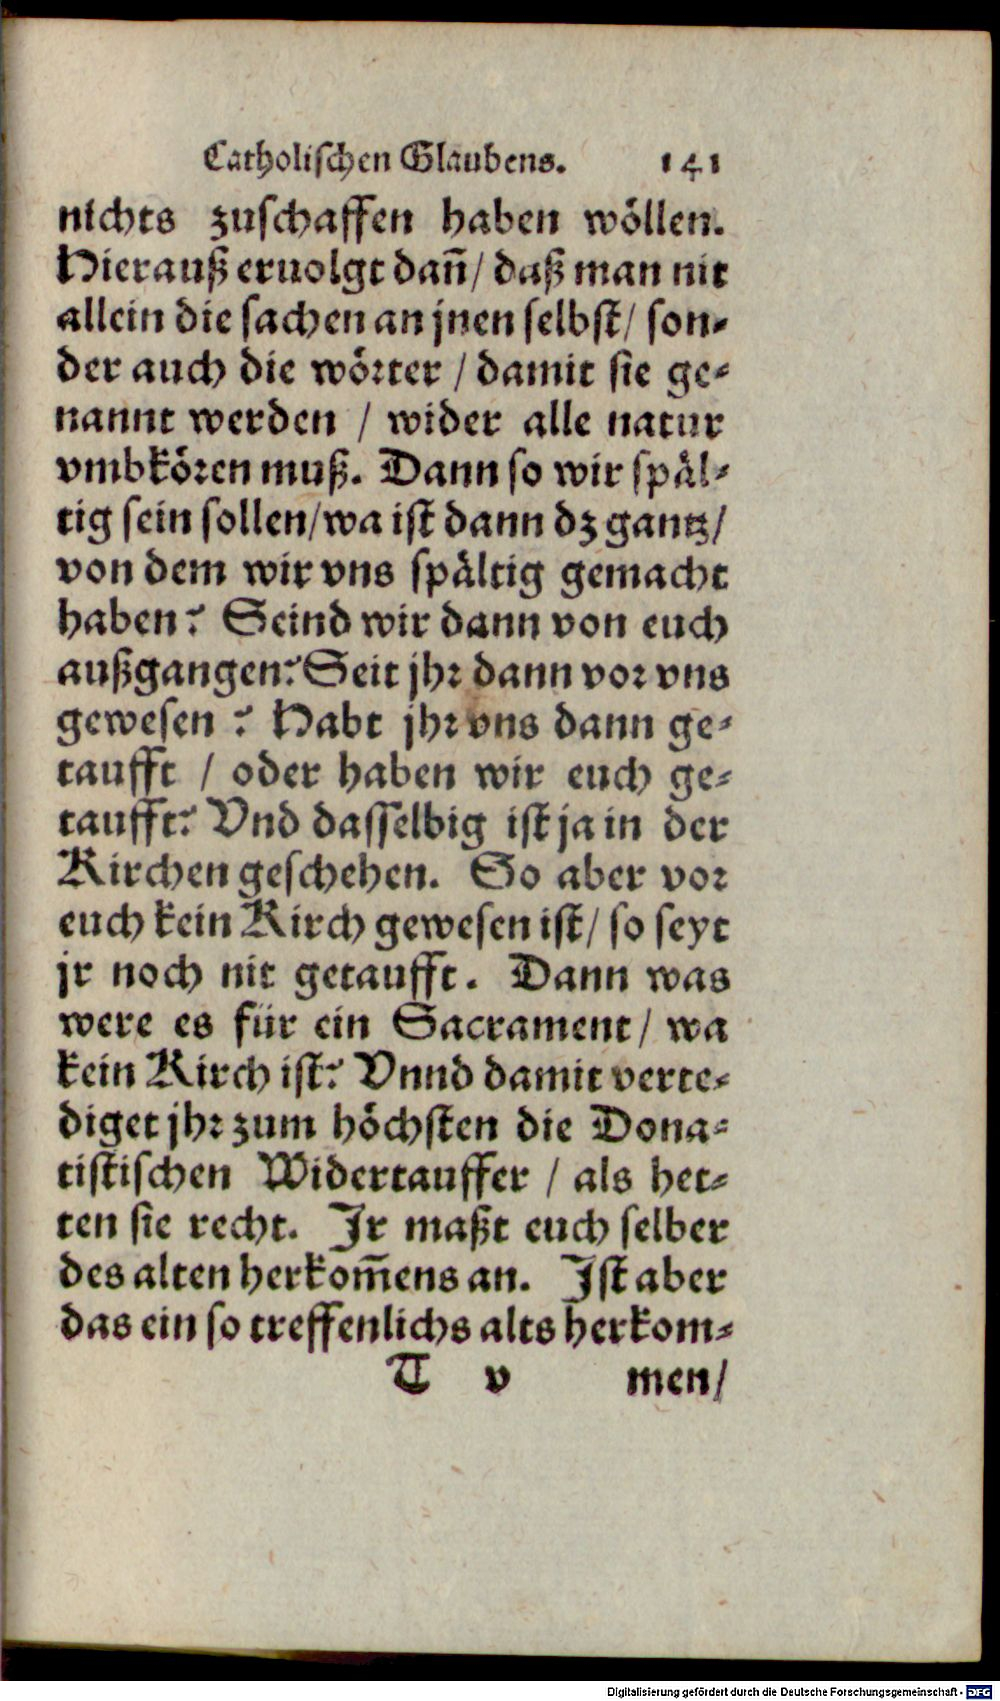 Catholischen Glaubens. 141
nichts zuschaffen haben wöllen.
Hierauß eruolgt dañ/ daß man nit
allein die sachen an jnen selbst/ son-
der auch die wörter / damit sie ge-
nannt werden / wider alle natur
vmbkören muß. Dann so wir späl-
tig sein sollen/wa ist dann dz gantz/
von dem wir vns spältig gemacht
haben? Seind wir dann von euch
außgangen? Seit jhr dann vor vns
gewesen ? Habt jhr vns dann ge-
taufft / oder haben wir euch ge-
taufft? Vnd dasselbig ist ja in der
Kirchen geschehen. So aber vor
euch kein Kirch gewesen ist/ so seyt
jr noch nit getaufft. Dann was
were es für ein Sacrament/ wa
kein Kirch ist? Vnnd damit verte-
diget jhr zum höchsten die Dona-
tistischen Widertauffer / als het-
ten sie recht. Jr maßt euch selber
des alten herkom̃ens an. Jst aber
das ein so treffenlichs alts herkom-
T v men/
Digitalisierung gefördert durch die Deutsche Forschungsgemeinschaft - DFG